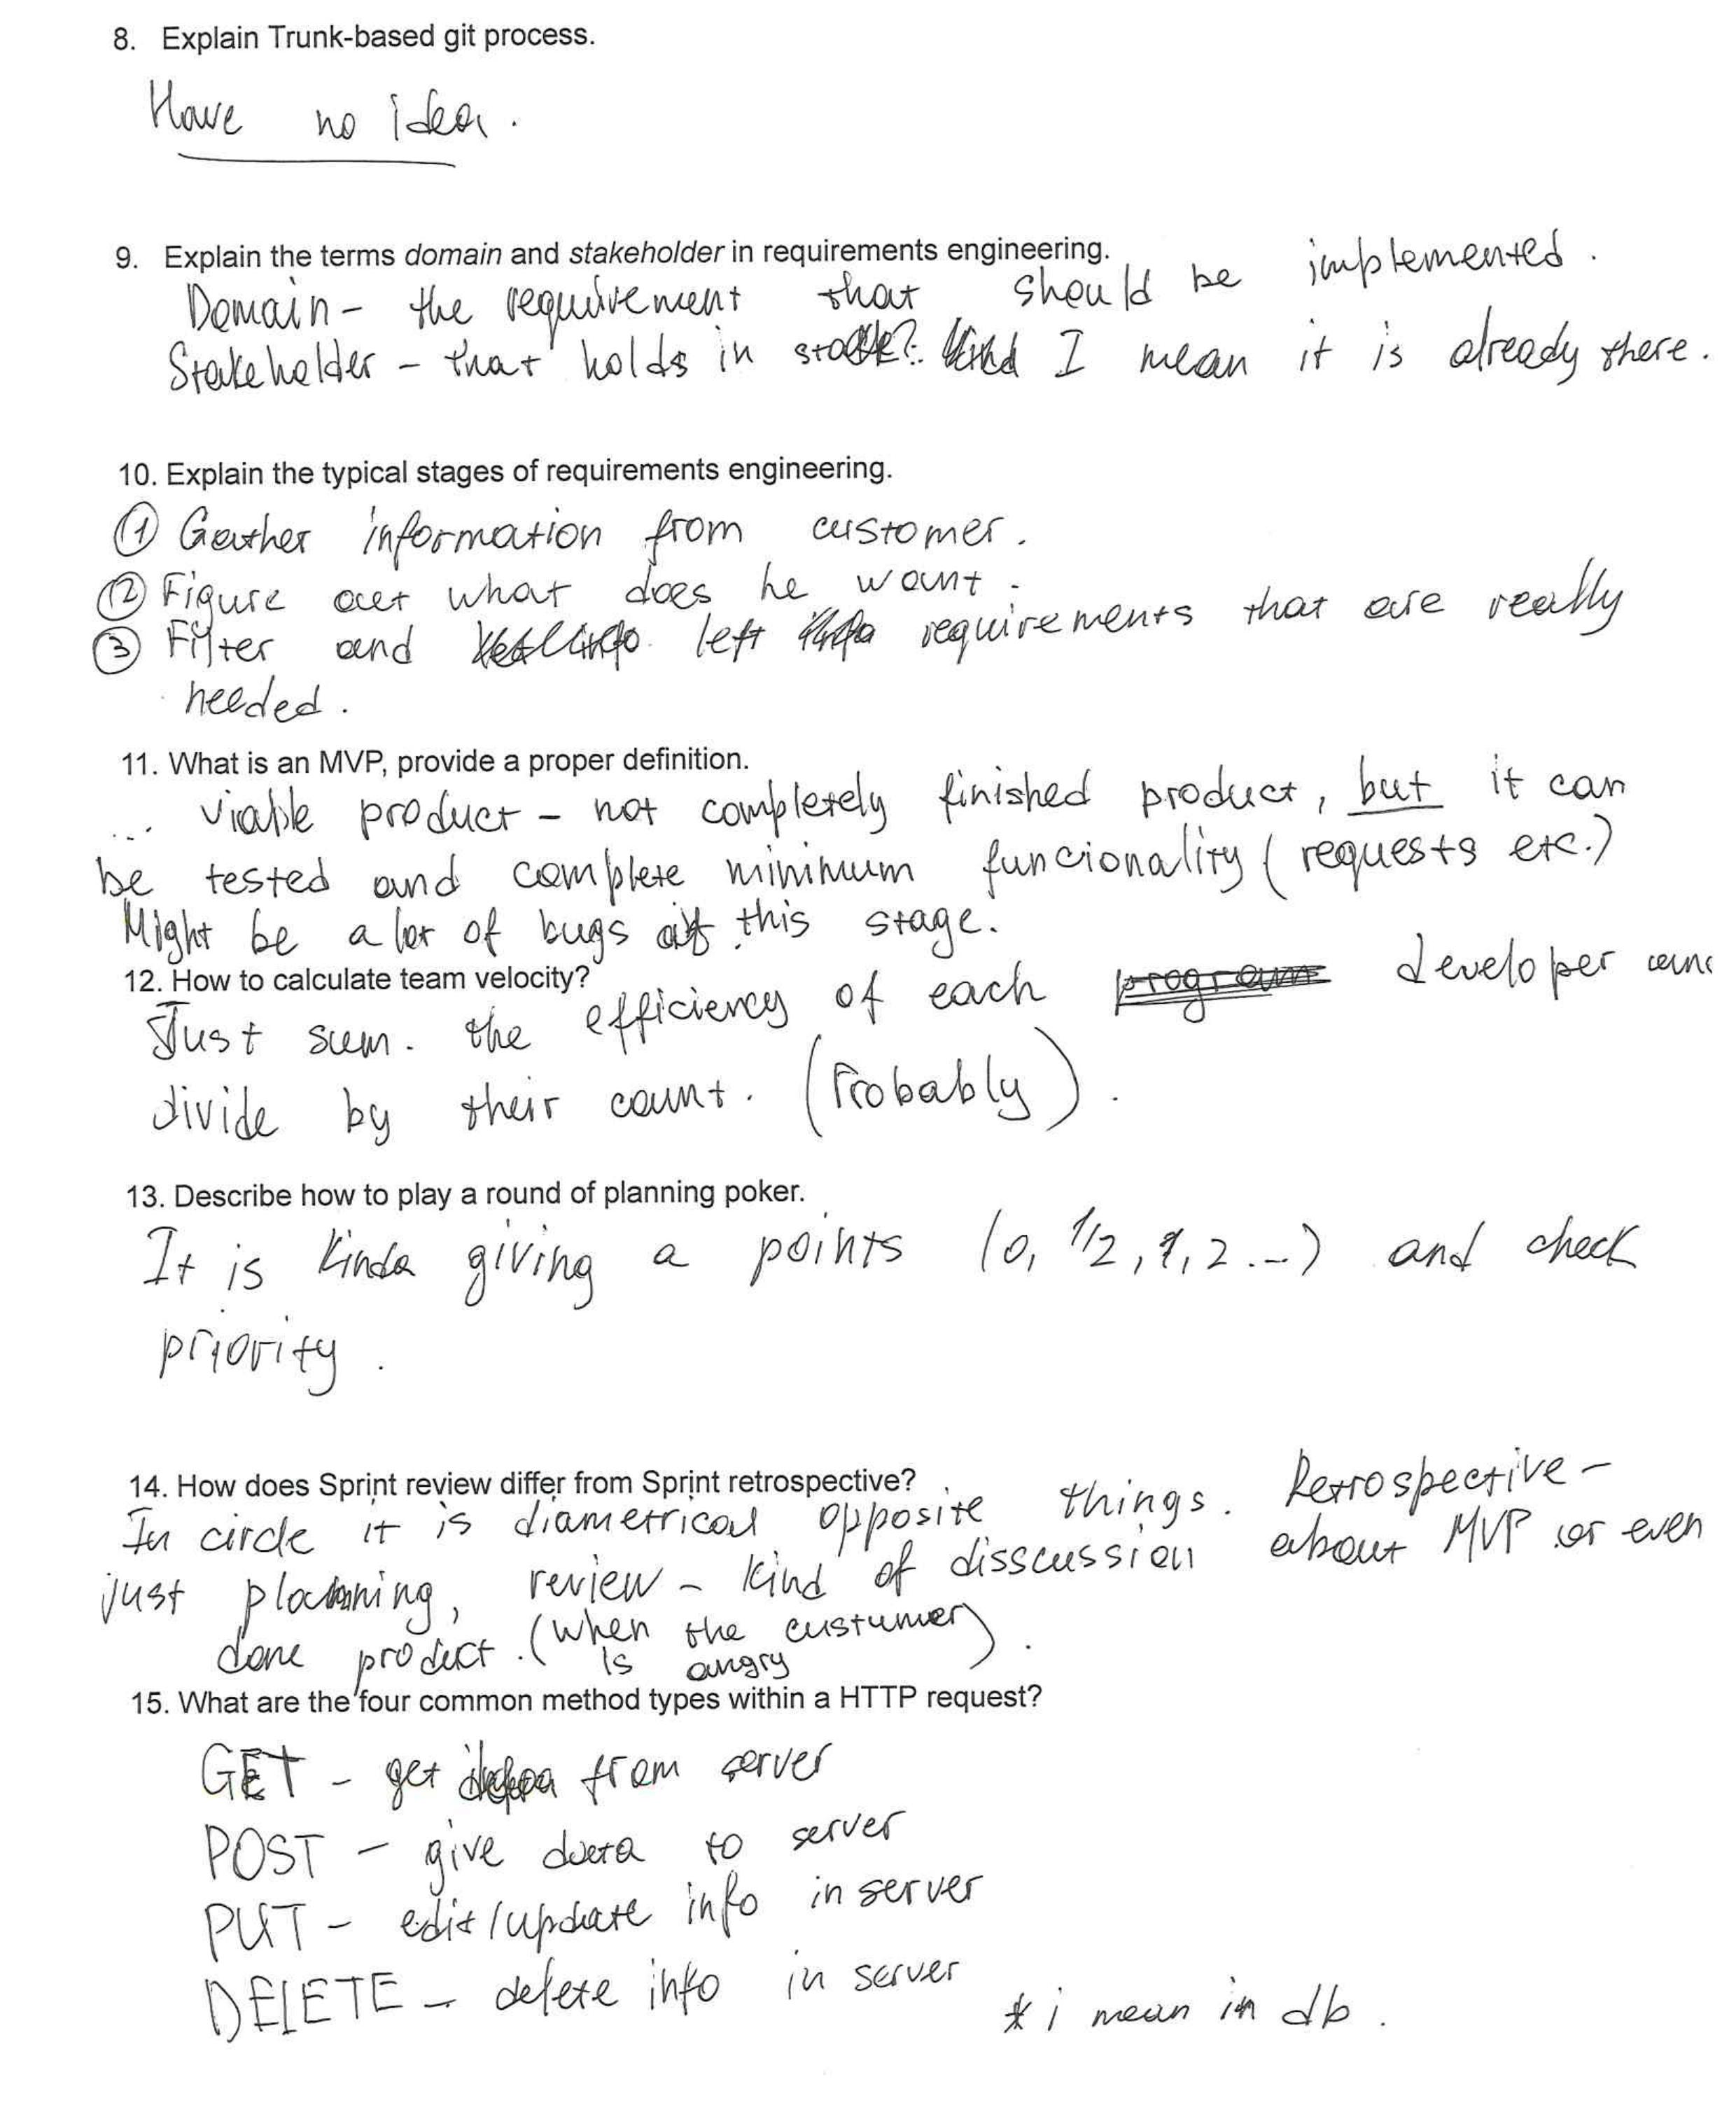 8. Explain Trunk-based git process.
Have no idea.
9. Explain the terms domain and stakeholder in requirements engineering.
Domain - the requirement that should be implemented.
Stakeholder - that holds in stock? I mean it is already there.
10. Explain the typical stages of requirements engineering.
① Gather information from customer.
② Figure out what does he want.
③ Filter and left requirements that are really
needed.
11. What is an MVP, provide a proper definition.
... viable product - not completely finished product, but it can
be tested and complete minimum funcionality (requests etc.)
Might be a lot of bugs at this stage.
12. How to calculate team velocity?
Just sum. the efficiency of each program developer and
divide by their count. (Probably).
13. Describe how to play a round of planning poker.
It is kinda giving a points (0, 1/2, 1, 2...) and check
priority.
14. How does Sprint review differ from Sprint retrospective?
In circle it is diametrical opposite things. Retrospective -
just planning, review - kind of disscussion about MVP or even
done product. (when the custumer
is angry).
15. What are the four common method types within a HTTP request?
GET - get from server
POST - give data to server
PUT - edit/update info in server
DELETE - delete info in server
* i mean in db.